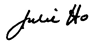 Julie Ho